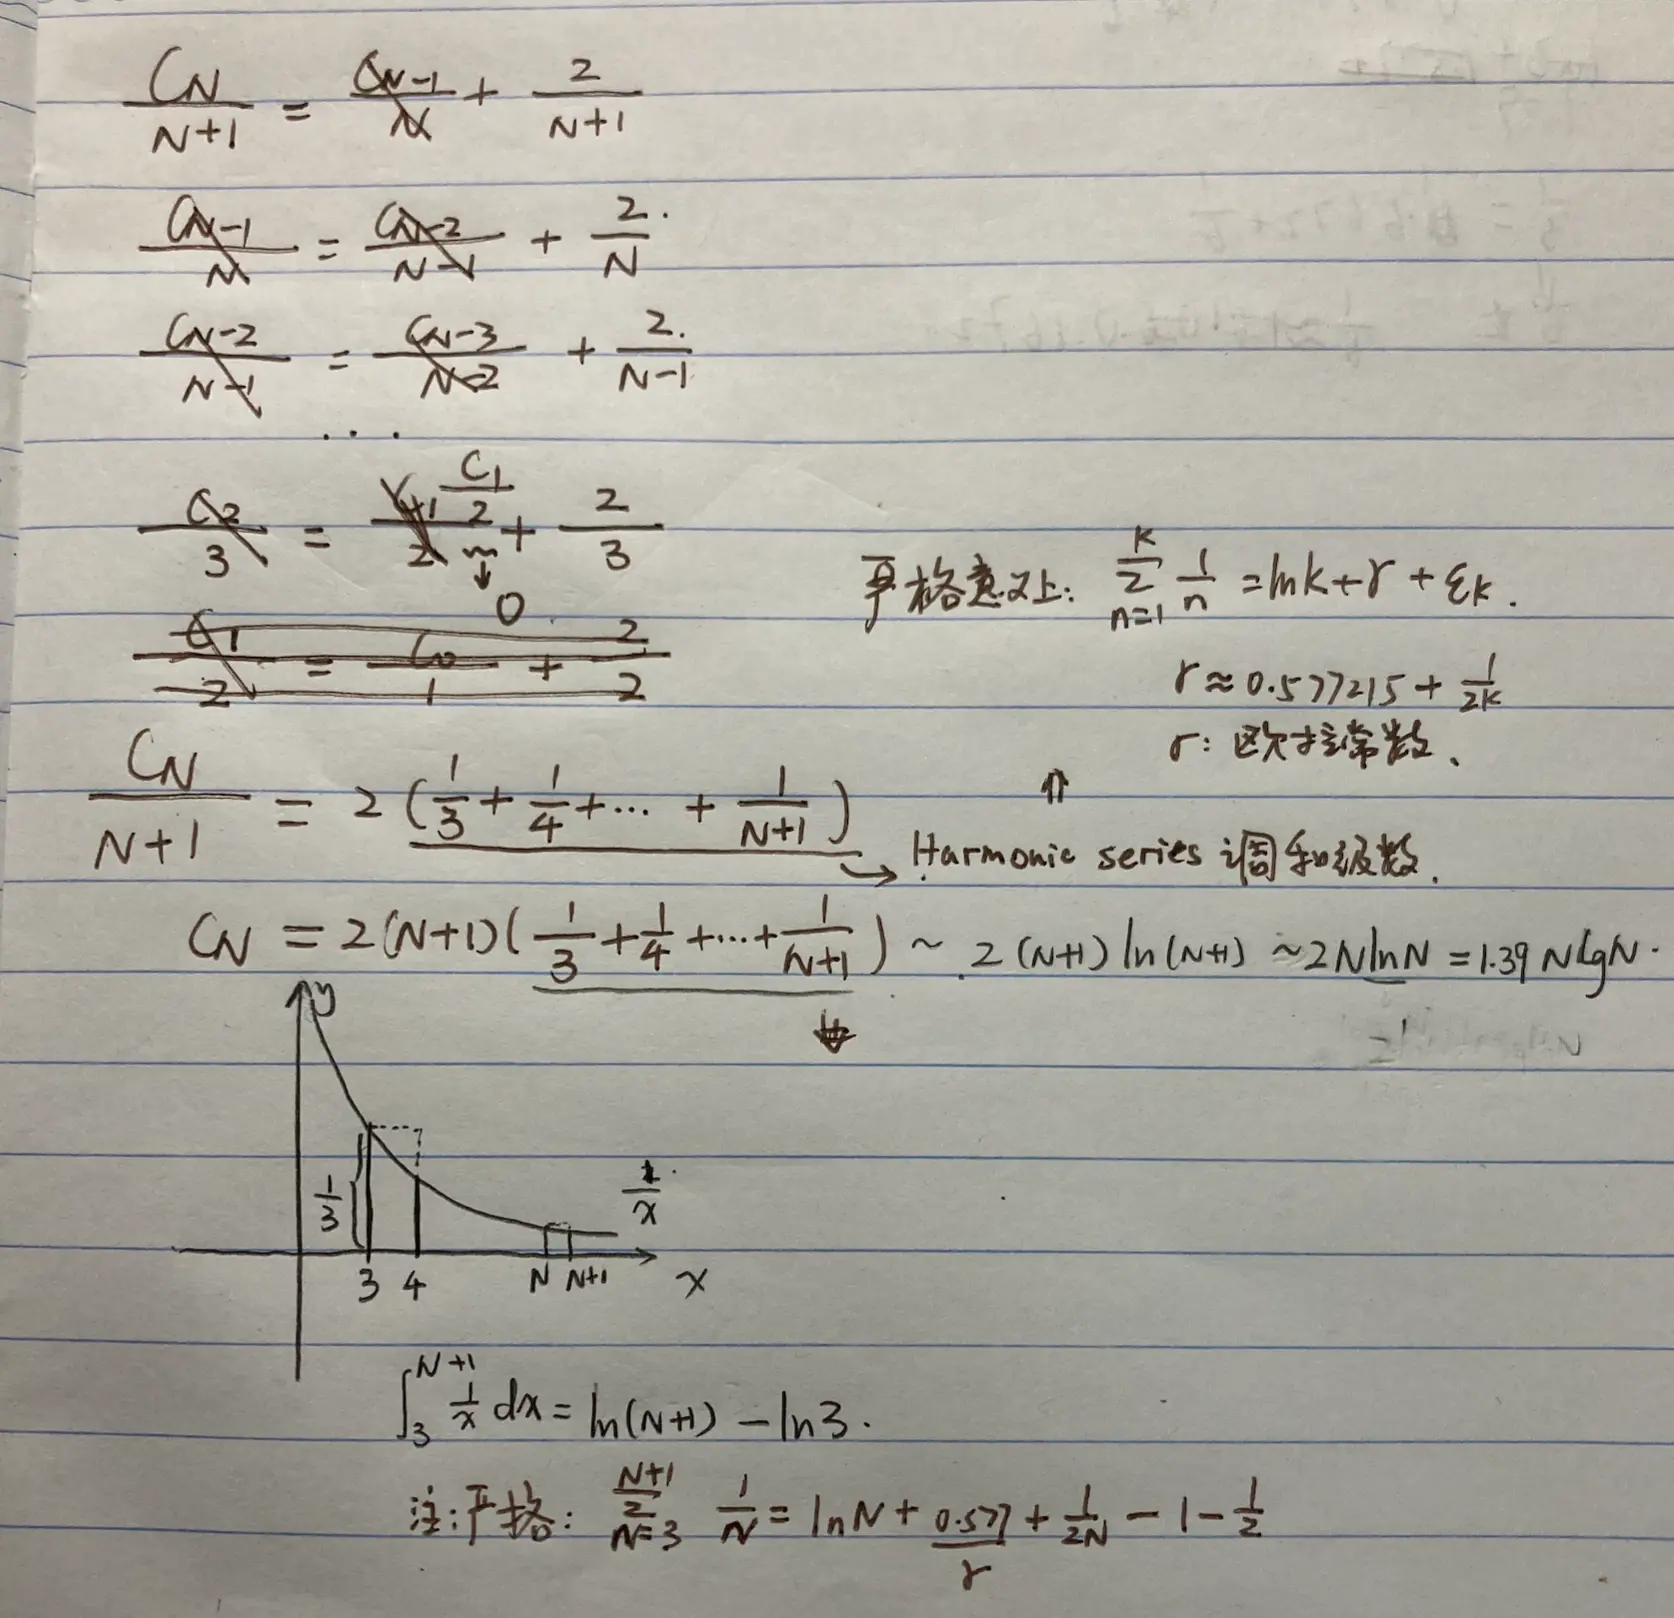 C_N/(N+1) = C_{N-1}/N + 2/(N+1)
C_{N-1}/N = C_{N-2}/(N-1) + 2/N
C_{N-2}/(N-1) = C_{N-3}/(N-2) + 2/(N-1)
...
C_2/3 = C_1/2 + 2/3
↓
0
C_1/2 = C_0/1 + 2/2
严格意义上: ∑_{n=1}^{k} 1/n = lnk + γ + ε_k.
γ ≈ 0.577215 + 1/2k
γ: 欧拉常数、
⇑
C_N/(N+1) = 2(1/3 + 1/4 + ... + 1/(N+1))
→ Harmonic series 调和级数.
C_N = 2(N+1)(1/3 + 1/4 + ... + 1/(N+1)) ~ 2(N+1)ln(N+1) ~ 2NlnN = 1.39 NlgN.
⇓
y
1/3
1/x
3 4 N N+1 x
∫_3^{N+1} 1/x dx = ln(N+1) - ln3.
注:严格: ∑_{N=3}^{N+1} 1/N = lnN + 0.577 + 1/2N - 1 - 1/2
γ